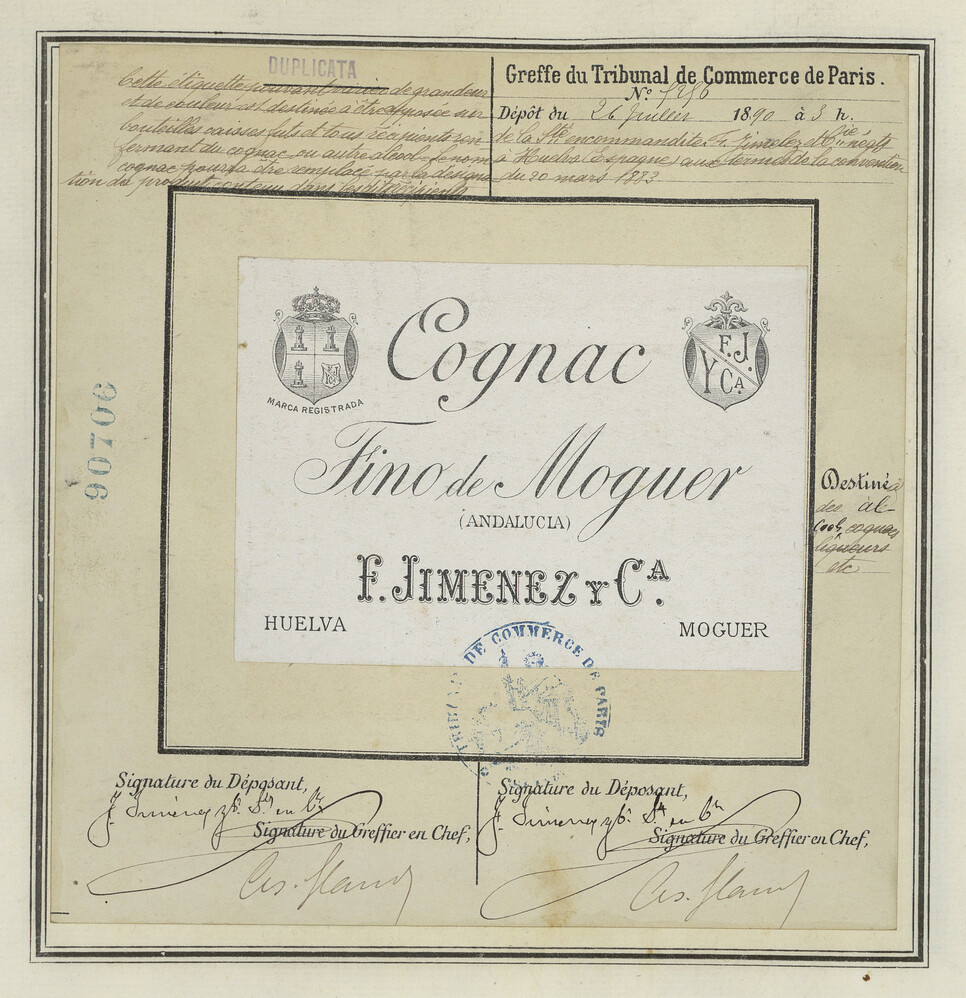 DUPLICATA
Cette étiquette pouvant varier de grandeur
et de couleur est destinée à être apposée sur
bouteilles caisses futs et tous récipients ren-
fermant du cognac ou autre alcool le nom
cognac pourra être remplacé par la designa-
tion du produit contenu dans les récipients
Greffe du Tribunal de Commerce de Paris.
Nº
Dépôt du 26 Juillet 1890 à 3 h.
de la Sté en commandite F. Jimenez et Cie
à Huelva (Espagne) aux termes de la convention
du 20 mars 1883
90706
Cognac
F.J.
Y CA
MARCA REGISTRADA
Fino de Moguer
(ANDALUCIA)
F. JIMENEZ Y CA.
HUELVA MOGUER
Destiné à
des al-
cools, cognacs
liqueurs
etc
TRIBUNAL DE COMMERCE DE PARIS
Signature du Déposant,
F. Jiménez y Ca. Sd en Cta
Signature du Greffier en Chef,
Signature du Déposant,
F. Jiménez y Ca. Sd en Cta
Signature du Greffier en Chef,